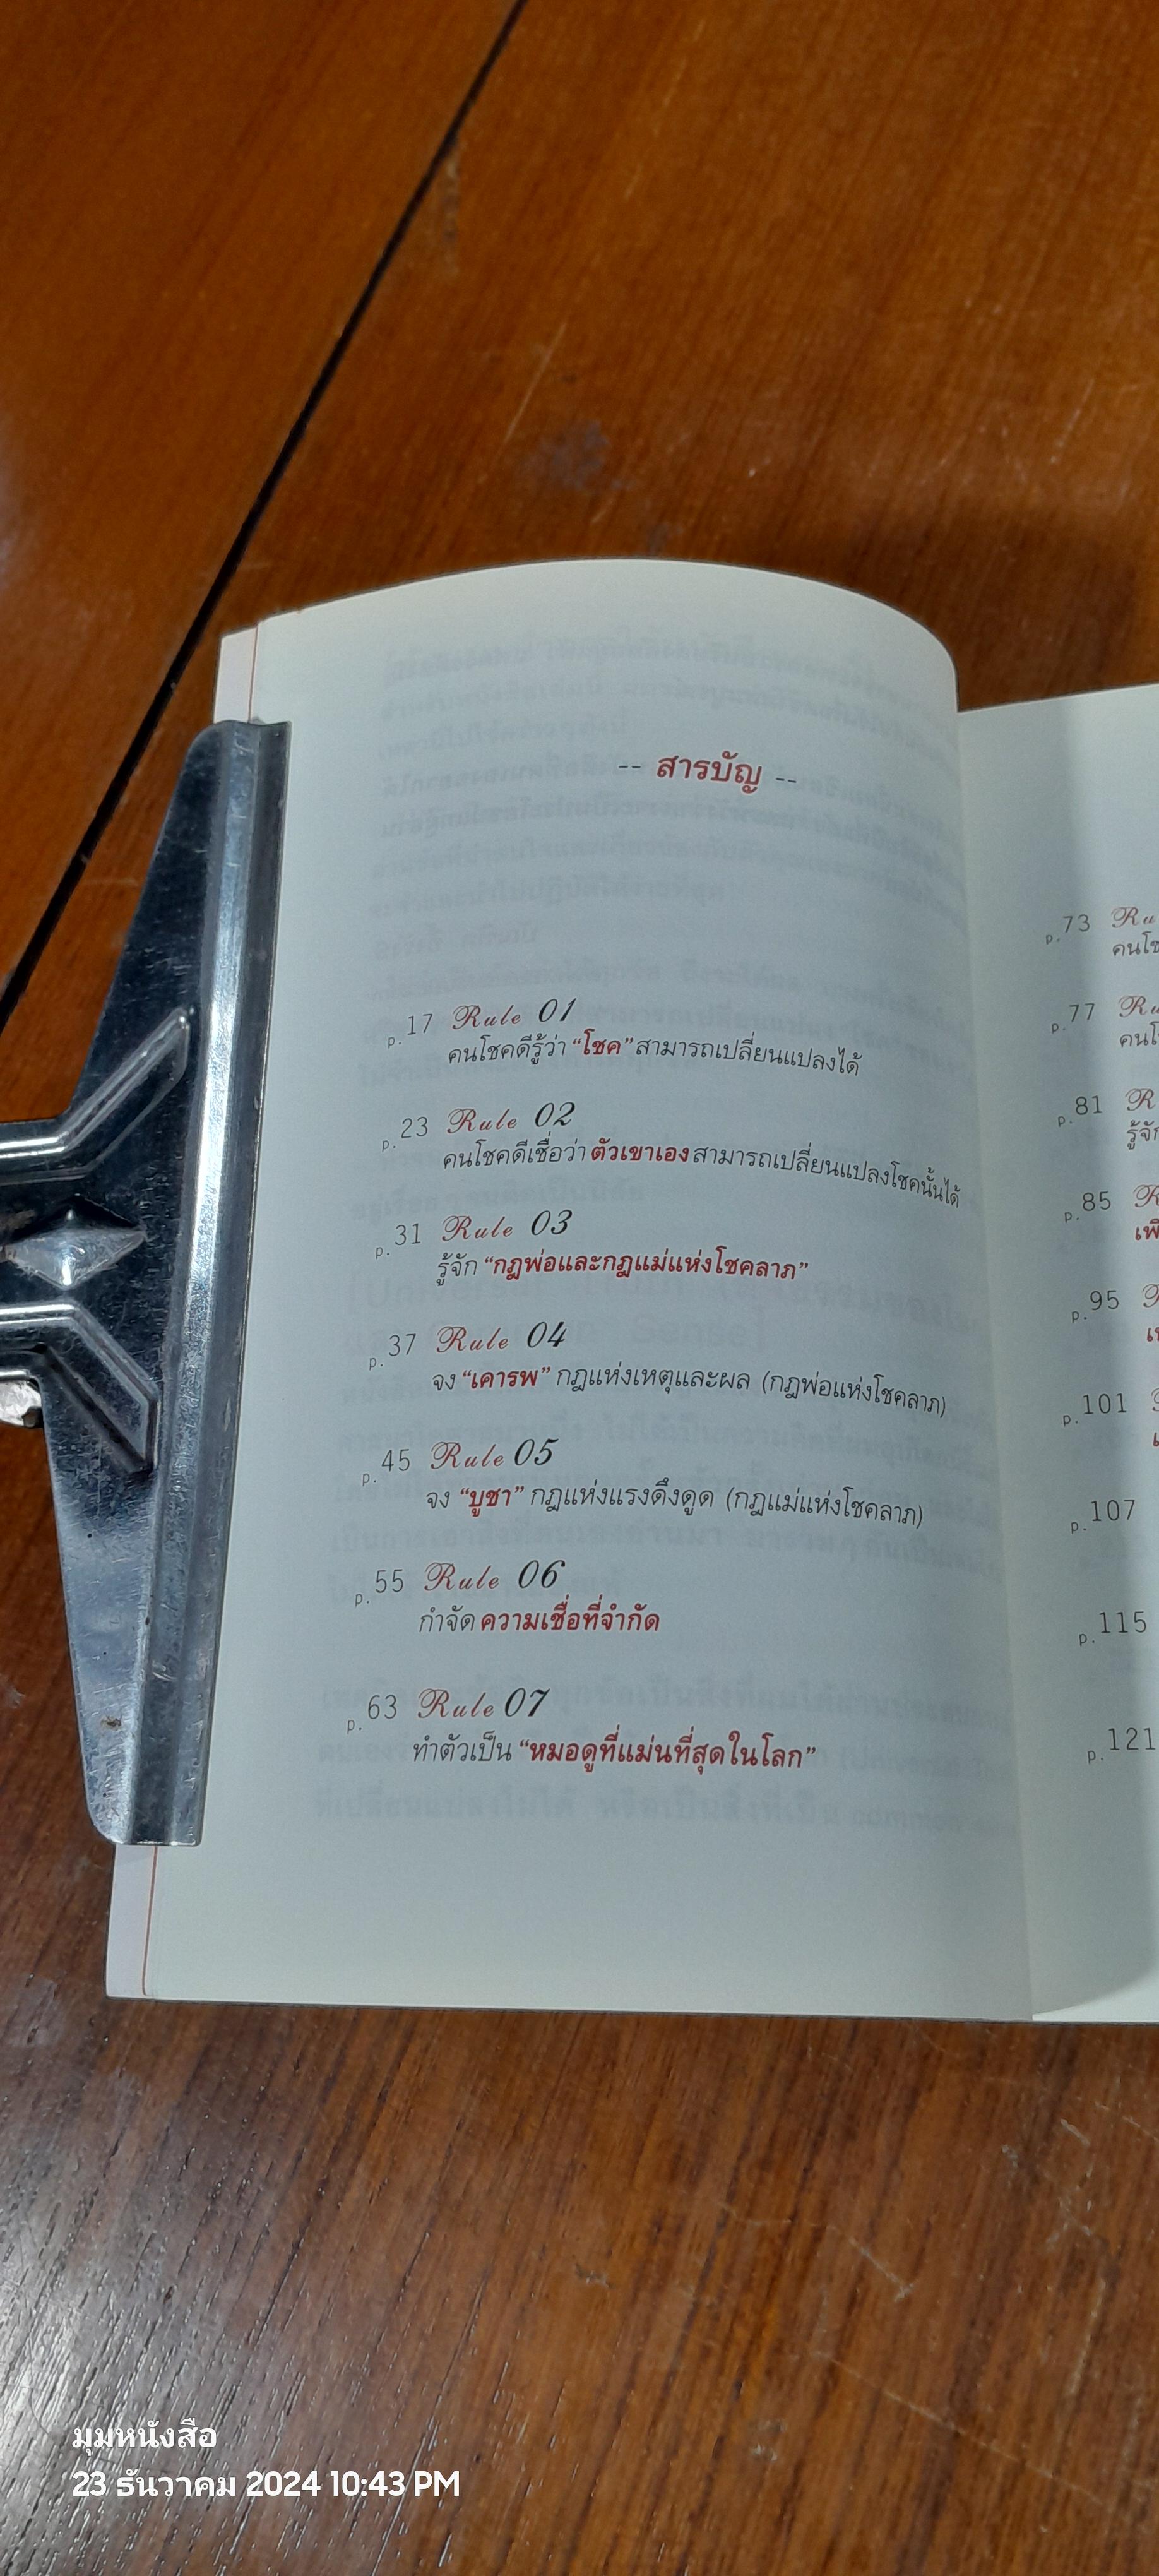 -- สารบัญ --
p.17 Rule 01
คนโชคดีรู้ว่า “โชค” สามารถเปลี่ยนแปลงได้
p.23 Rule 02
คนโชคดีเชื่อว่า ตัวเขาเอง สามารถเปลี่ยนแปลงโชคนั้นได้
p.31 Rule 03
รู้จัก “กฎพ่อและกฎแม่แห่งโชคลาภ”
p.37 Rule 04
จง “เคารพ” กฎแห่งเหตุและผล (กฎพ่อแห่งโชคลาภ)
p.45 Rule 05
จง “บูชา” กฎแห่งแรงดึงดูด (กฎแม่แห่งโชคลาภ)
p.55 Rule 06
กำจัด ความเชื่อที่จำกัด
p.63 Rule 07
ทำตัวเป็น “หมอดูที่แม่นที่สุดในโลก”
p.73
p.77
p.81
p.85
p.95
p.101
p.107
p.115
p.121
มุมหนังสือ
23 ธันวาคม 2024 10:43 PM